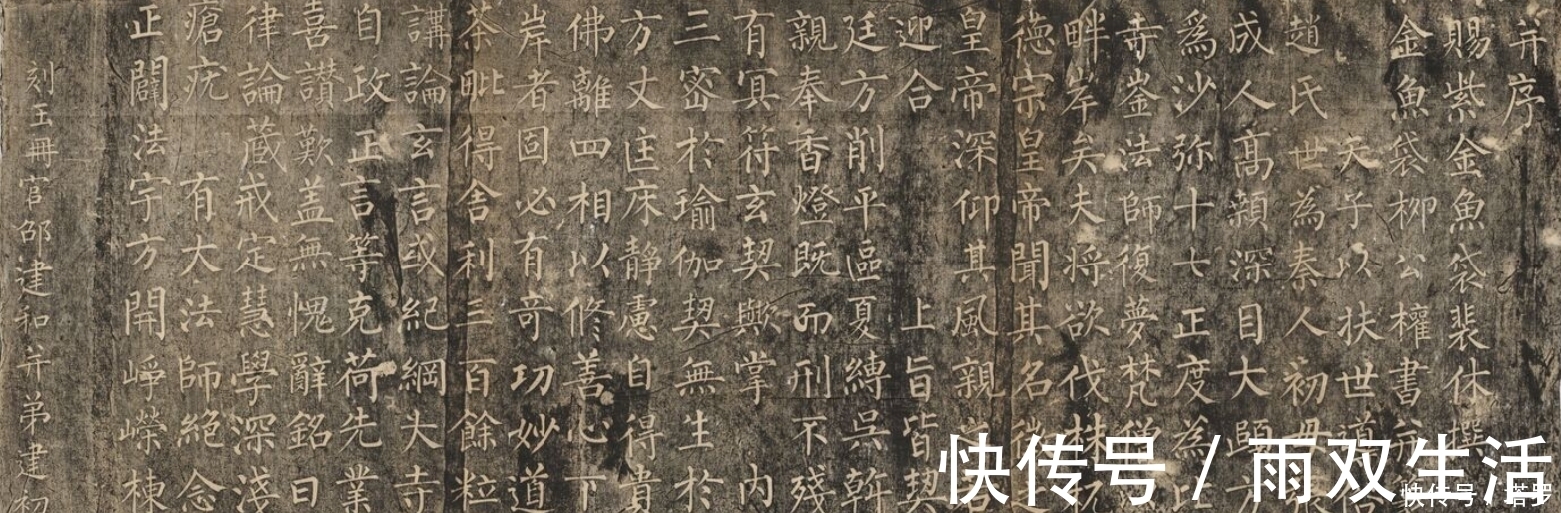 并序
賜紫金魚袋裴休撰
金魚袋柳公權書并
天子以扶世導
趙氏世為秦人初母
成人高顙深目大頤方
為沙弥十七正度為比
寺崟法師復夢梵僧
畔岸矣夫将欲伐株杌
德宗皇帝聞其名徵
皇帝深仰其風親
迎合上旨皆契
廷方削平區夏縛吳斡
親奉香燈既而刑不殘
有冥符玄契歟掌內
三密於瑜伽契無生於
方丈匡床靜慮自得貴
佛離四相以修善心下
岸者固必有奇功妙道
荼毗得舍利三百餘粒
講論玄言或紀綱大寺
自政正言等克荷先業
喜讚歎盖無愧辭銘曰
律論藏戒定慧學深淺
瘡疣有大法師絕念
正闢法宇方開崢嶸棟
刻玉冊官邵建和并弟建初
快传号 / 雨双生活
快传号 / 塔罗